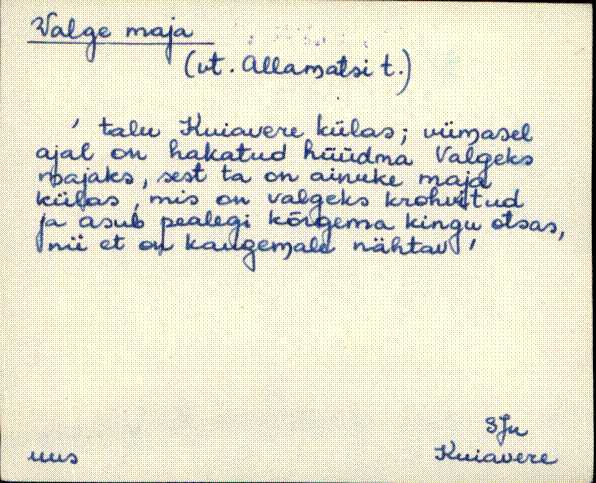 Valge maja
(vt. Allamatsi t.)
' talu Kuiavere külas; viimasel
ajal on hakatud hüüdma Valgeks
majaks, sest ta on ainuke maja
külas, mis on valgeks krohvitud
ja asub pealegi kõrgema kingu otsas,
nii et on kaugemale nähtav '
SJn
uus Kuiavere